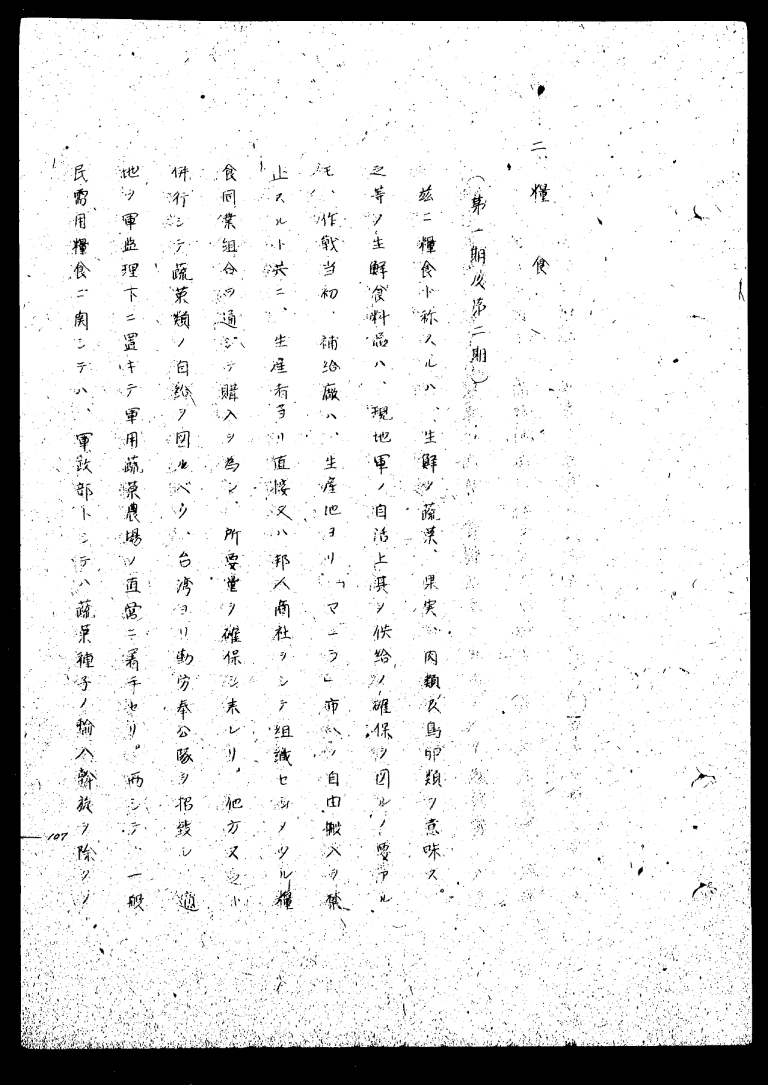 二、糧食
（第一期及第二期）
玆ニ糧食ト称スルハ、生鮮ノ蔬菜、果実、肉類及鳥卵類ヲ意味ス。
之等ノ生鮮食料品ハ、現地軍ノ自活上其ノ供給ノ確保ヲ図ルノ要アル
モ、作戦当初、補給廠ハ、生産地ヨリ「マニラ」市ヘノ自由搬入ヲ禁
止スルト共ニ、生産者ヨリ直接又ハ邦人商社ヲシテ組織セシメタル糧
食同業組合ヲ通ジテ購入ヲ為シ、所要量ヲ確保シ来レリ。他方又之ト
併行シテ蔬菜類ノ自給ヲ図ルベク、台湾ヨリ勤労奉公隊ヲ招致シ、適
地ヲ軍監理下ニ置キテ軍用蔬菜農場ノ直営ニ着手セリ。而シテ、一般
民需用糧食ニ関シテハ、軍政部トシテハ蔬菜種子ノ輸入斡旋ヲ除クノ
107